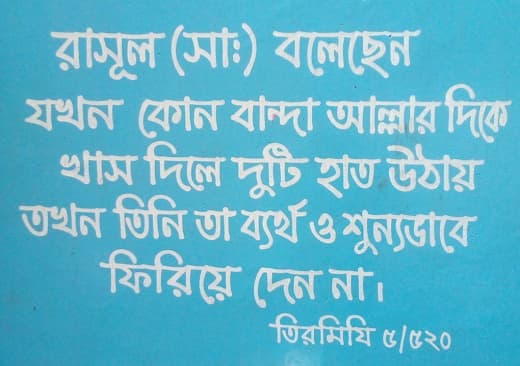 রাসূল (সাঃ) বলেছেন
যখন কোন বান্দা আল্লার দিকে
খাস দিলে দুটি হাত উঠায়
তখন তিনি তা ব্যর্থ ও শুন্যভাবে
ফিরিয়ে দেন না।
তিরমিযি ৫/৫২০